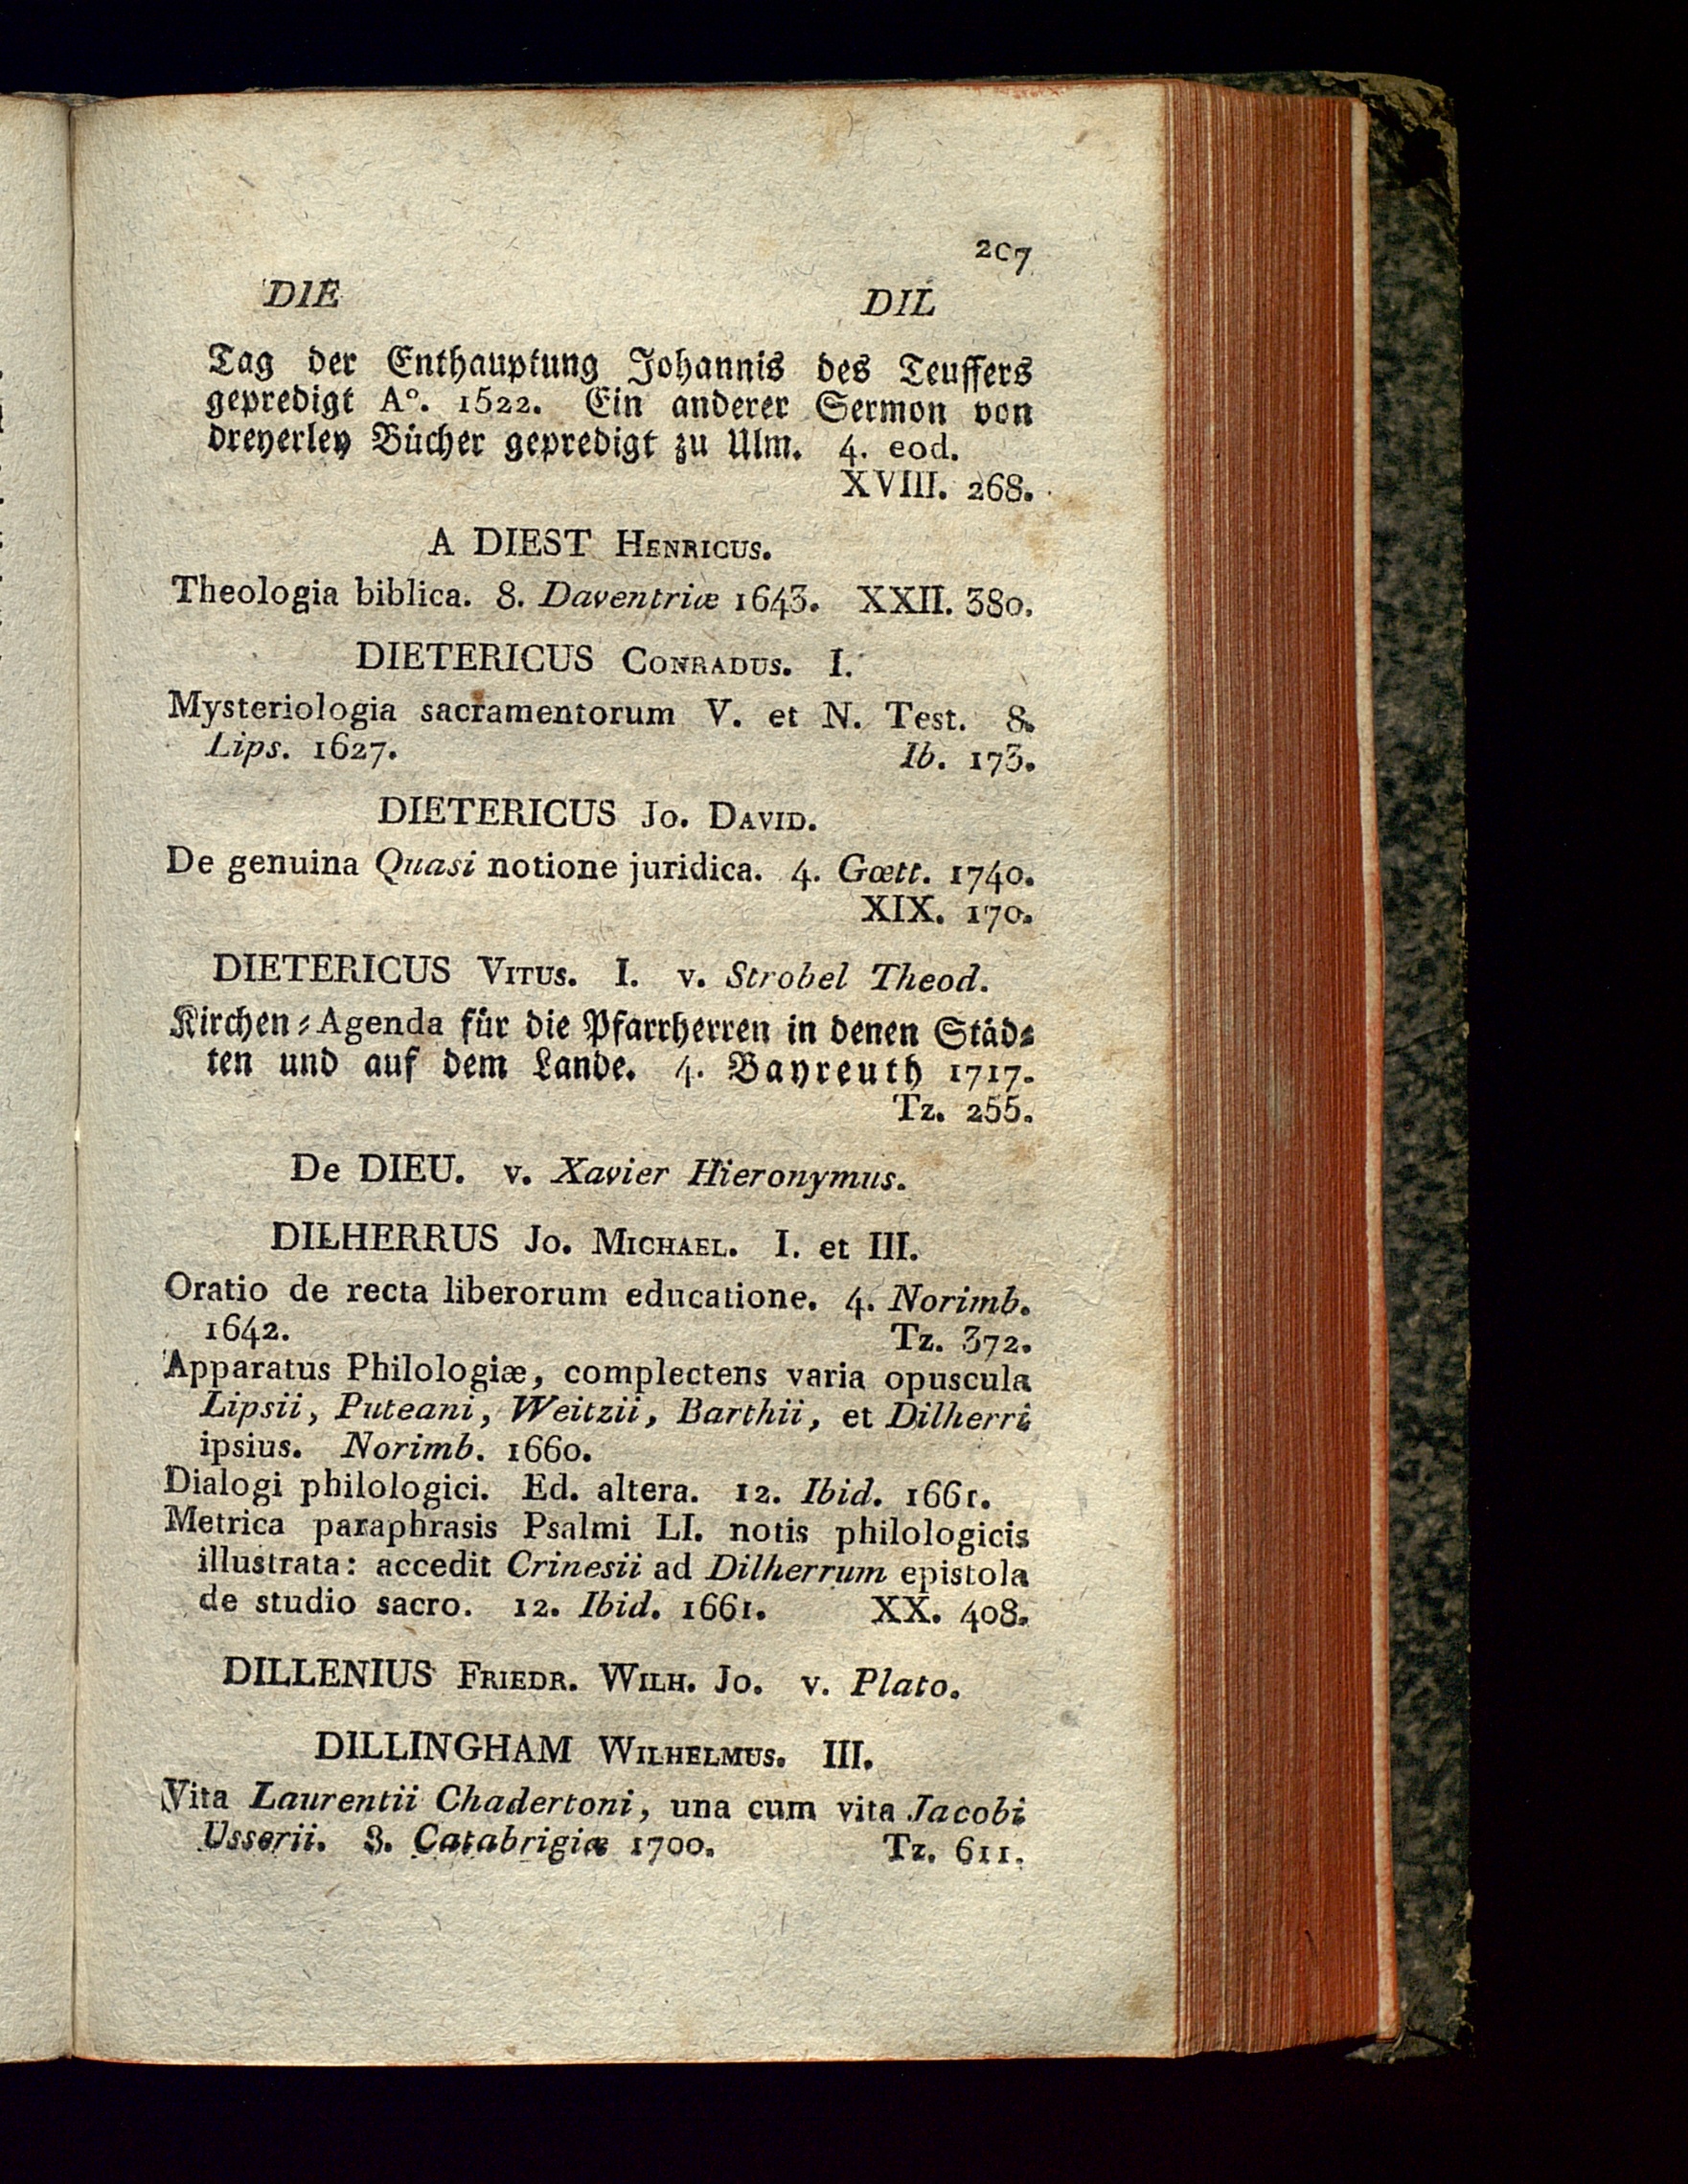 207
DIE DIL
Tag der Enthauptung Johannis des Teuffers
gepredigt A°. 1522. Ein anderer Sermon von
dreyerley Bücher gepredigt zu Ulm. 4. eod.
XVIII. 268.
A DIEST HENRICUS.
Theologia biblica. 8. Daventriæ 1643. XXII. 380.
DIETERICUS CONRADUS. I.
Mysteriologia sacramentorum V. et N. Test. 8.
Lips. 1627. Ib. 173.
DIETERICUS JO. DAVID.
De genuina Quasi notione juridica. 4. Gœtt. 1740.
XIX. 170.
DIETERICUS VITUS. I. v. Strobel Theod.
Kirchen-Agenda für die Pfarrherren in denen Städ-
ten und auf dem Lande. 4. Bayreuth 1717.
Tz. 255.
De DIEU. v. Xavier Hieronymus.
DILHERRUS JO. MICHAEL. I. et III.
Oratio de recta liberorum educatione. 4. Norimb.
1642. Tz. 372.
Apparatus Philologiæ, complectens varia opuscula
Lipsii, Puteani, Weitzii, Barthii, et Dilherri
ipsius. Norimb. 1660.
Dialogi philologici. Ed. altera. 12. Ibid. 1661.
Metrica paraphrasis Psalmi LI. notis philologicis
illustrata: accedit Crinesii ad Dilherrum epistola
de studio sacro. 12. Ibid. 1661. XX. 408.
DILLENIUS FRIEDR. WILH. JO. v. Plato.
DILLINGHAM WILHELMUS. III.
Vita Laurentii Chadertoni, una cum vita Jacobi
Usserii. 8. Catabrigiæ 1700. Tz. 611.